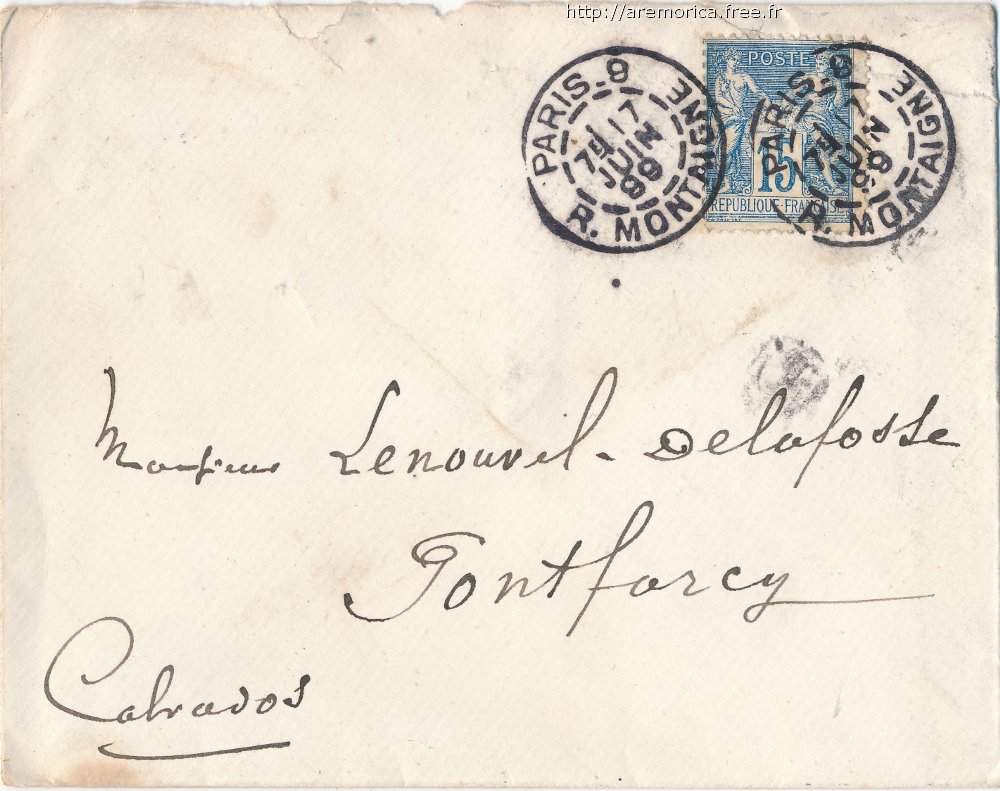 http://aremorica.free.fr
PARIS_8
7E 17
JUIN
99
R. MONTAIGNE
POSTE
15
REPUBLIQUE FRANÇAISE
PARIS_8
7E 17
JUIN
99
R. MONTAIGNE
Monsieur Lenouvel-Delafosse
Pontfarcy
Calvados